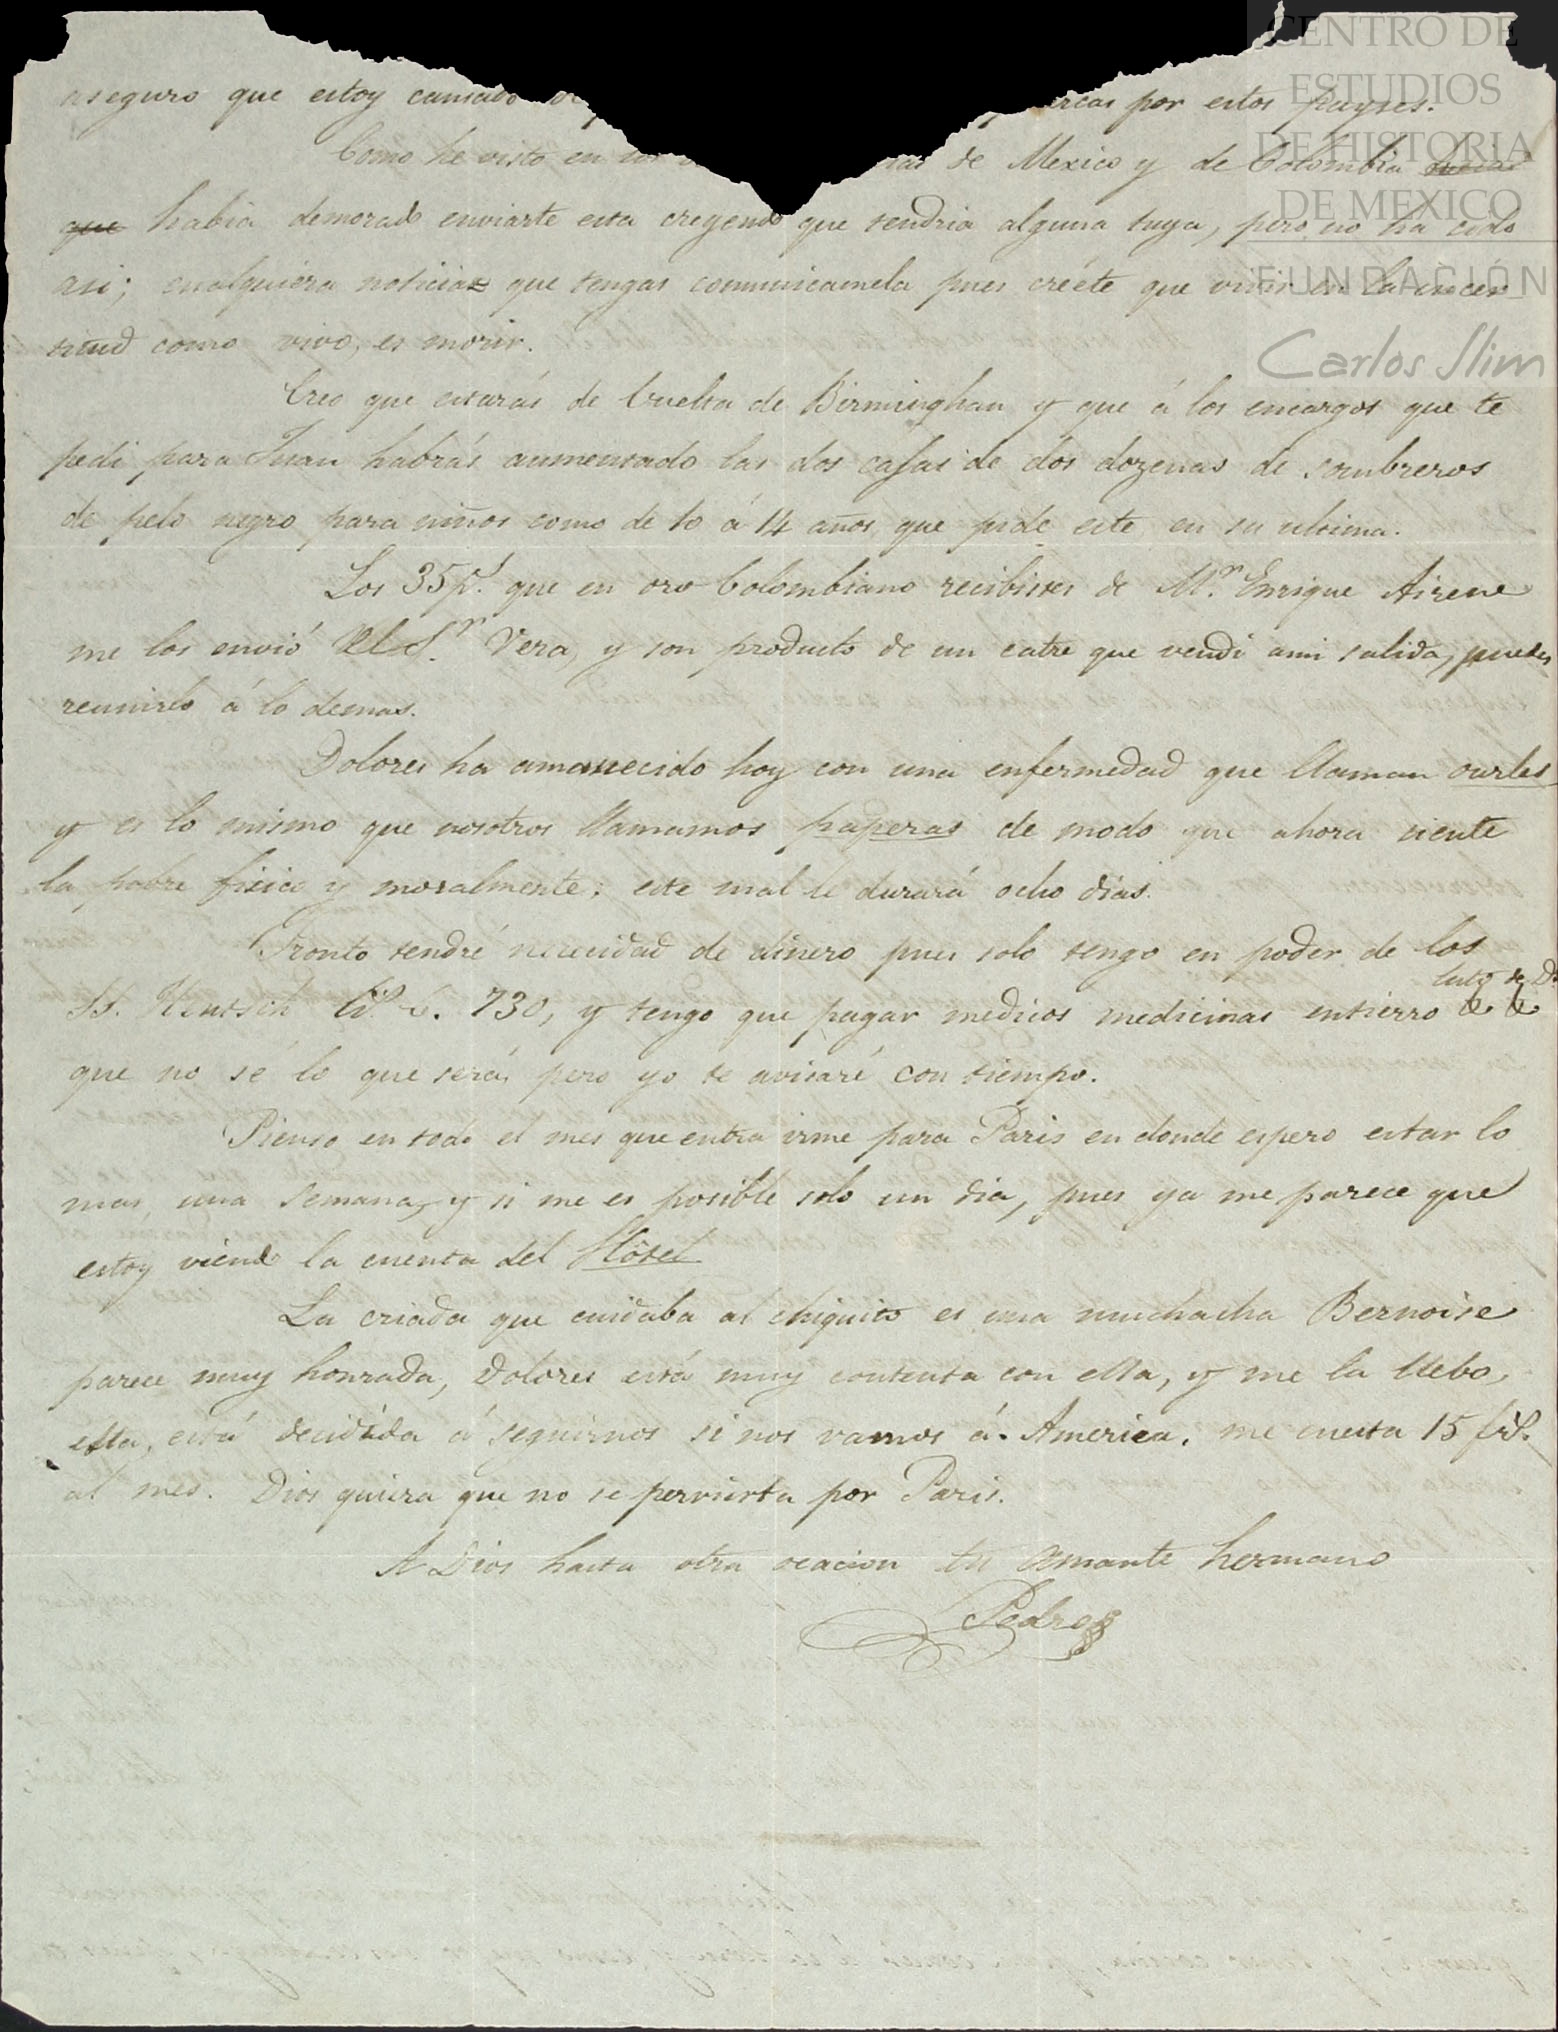 aseguro que estoy cansado de
ercas por estos payses.
Como he visto en los
ias de Mexico y de Colombia
que habia demorado enviarte esta creyendo que tendria alguna tuya, pero no ha cido
asi; cualquiera noticia que tengas comunicamela pues creéte que vivir en la incer
titud como vivo, es morir.
Creo que estarás de buelta de Birminghan y que á los encargos que te
pedi para Juan habrás aumentado las dos cajas de dos dozenas de sombreros
de pelo negro para niños como de 10 á 14 años, que pide este en su ultima.
Los 35 p.s que en oro Colombiano recibistes de M.r Enrique Airene
me los envió el S.r Vera, y son producto de un catre que vendi ami salida, puedes
reunirlo á lo demas.
Dolores ha amanecido hoy con una enfermedad que llaman ourles
y es lo mismo que nosotros llamamos paperas de modo que ahora siente
la pobre fisico y moralmente; este mal le durará ocho dias.
Pronto tendré nececidad de dinero pues solo tengo en poder de los
SS. 730, y tengo que pagar medicos medicinas entierro luto de D.s & &
que no sé lo que será, pero yo te avisaré con tiempo.
Pienso en todo el mes que entra irme para Paris en donde espero estar lo
mas una semana, y si me es posible solo un dia, pues ya me parece que
estoy viendo la cuenta del Hôtel
La criada que cuidaba al chiquito es una muchacha Bernoise
parece muy honrada, Dolores está muy contenta con ella, y me la llebo,
ella, está decidida á seguirnos si nos vamos á America. me cuesta 15 f.s
al mes. Dios quiera que no se pervierta por Paris.
A Dios hasta otra ocacion tu amante hermano
Pedro
CENTRO DE
ESTUDIOS
DE HISTORIA
DE MEXICO
FUNDACIÓN
Carlos Slim